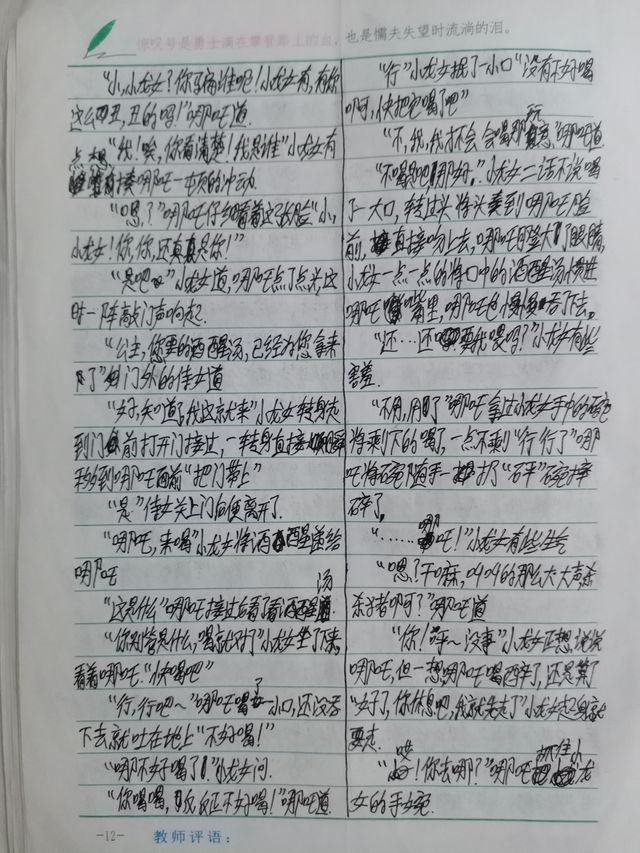 惊叹号是勇士滴在攀登路上的血，也是懦夫失望时流淌的泪。
“小，小龙女？你不痛谁吧！小龙女有，有你
这么丑，丑的吗！”哪吒道.
“我！唉，你看清楚！我是谁”小龙女有
点想揍哪吒一顿的冲动.
“嗯？”哪吒仔细看着这张脸“小，
小龙女！你，你，还真真是你！”
“是吧”小龙女道，哪吒点了点头，这
时一阵敲门声响起.
“公主，您要的酒醒汤，已经为您拿来
了”门外的侍女道
“好，知道了，我这就来”小龙女转身走
到门前打开门接过，一转身直接
移到哪吒面前“把门带上”
“是”侍女关上门后便离开了.
“哪吒，来喝”小龙女将酒醒汤递给
哪吒
“这是什么”哪吒接过后看了看酒醒
“你别管是什么，喝就对了”小龙女坐了下来，
看着哪吒.“快喝吧”
“行，行吧～”哪吒喝了一小口，还没吞
下去就吐在地上“不好喝！”
“哪不好喝了”小龙女问.
“你喝喝，反反正不好喝！”哪吒道.
“行”小龙女抿了一小口“没有不好喝
啊，快把它喝了吧”
“不，我，我才不会会喝那玩意”哪吒道
“不喝是吧！那好.”小龙女二话不说喝
了一大口，转过头将头凑到哪吒脸
前，直接吻上去，哪吒瞪大了眼睛，
小龙女一点一点的将口中的酒醒汤喂进
哪吒嘴里，哪吒也慢慢吞了下去.
“还…还要我喂吗？”小龙女有些
害羞.
“不用，用了”哪吒拿过小龙女手中的碗
将剩下的喝了，一点不剩“行行了”哪
吒将碗随手一扔了“砰”碗摔
碎了.
“……哪吒！”小龙女有些生气
“嗯？干嘛，叫叫的那么大大声杀
杀猪啊？”哪吒道
“你！哼～没事”小龙女正想说说
哪吒，但一想哪吒喝醉了，还是算了
“好了，你休息吧，我就先走了”小龙女起身就
要走.
“唉！你去哪？”哪吒抓住小龙
女的手腕
-12- 教师评语：